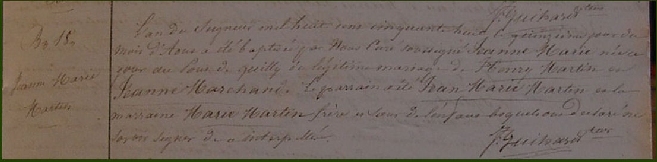 J. Guihard
Bq 15
Jeanne Marie
Martin
L'an du Seigneur mil huit cent cinquante huit le quinzième jour du
mois d'Aout a été baptisée par Nous Curé soussigné Jeanne Marie née ce
jour au de quilly du légitime mariage de Martin et
Jeanne Marchand. Le parrain a été Jean Marie Martin et la
marraine Marie Martin frère et sœur de l'enfant lesquels ont déclaré ne
savoir signer de ce interpellés.
J. Guihard